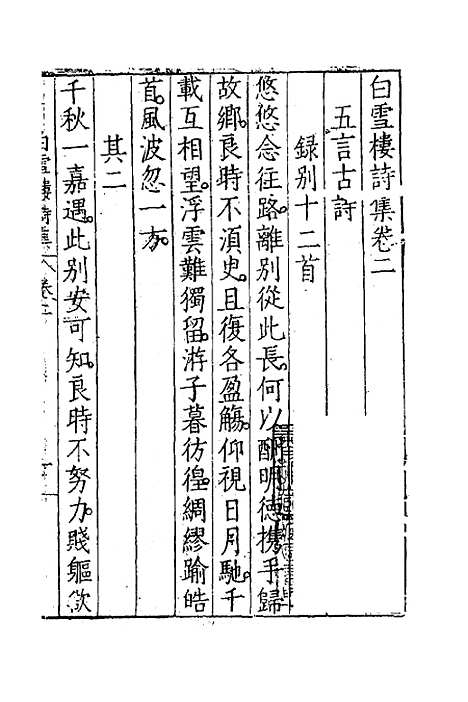 白雪樓詩集卷二
五言古詩
録别十二首
悠悠念往路離别從此長何以酬明德携手歸
故鄉良時不湏臾且復各盈觴仰視日月馳千
載互相望浮雲難獨留游子暮彷徨綢繆踰皓
首風波忽一方
其二
千秋一嘉遇此别安可知良時不努力賤軀欻
白雪樓詩集 卷二